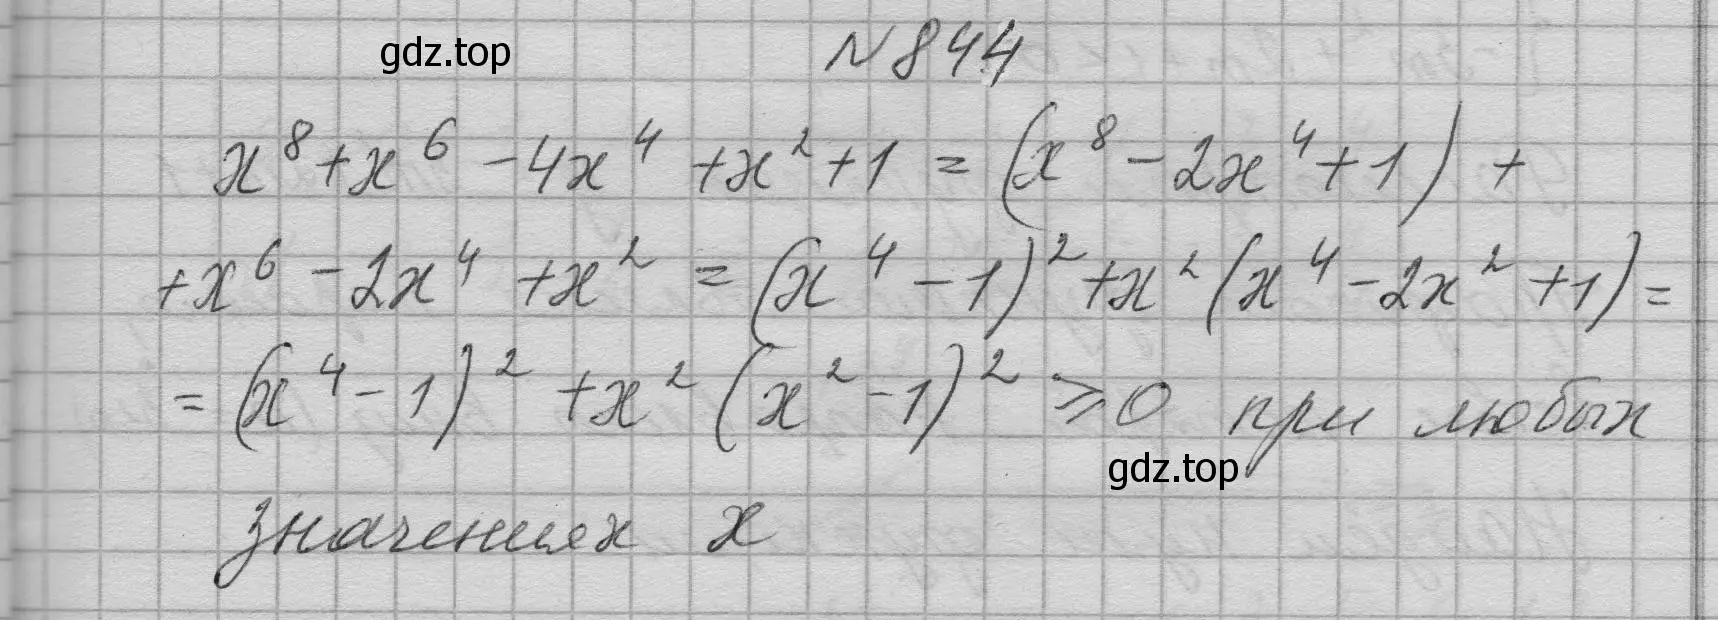 gdz.top
N 844
x⁸ + x⁶ - 4x⁴ + x² + 1 = (x⁸ - 2x⁴ + 1) +
+ x⁶ - 2x⁴ + x² = (x⁴ - 1)² + x² (x⁴ - 2x² + 1) =
= (x⁴ - 1)² + x² (x² - 1)² ⩾ 0 при любых
gdz.top
значениях x